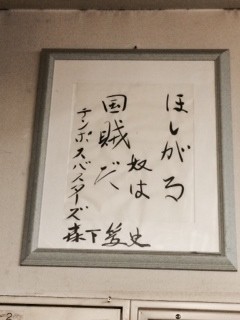 ほしがる
奴は
国賊だ
テンポスバスターズ
森下篤史
2